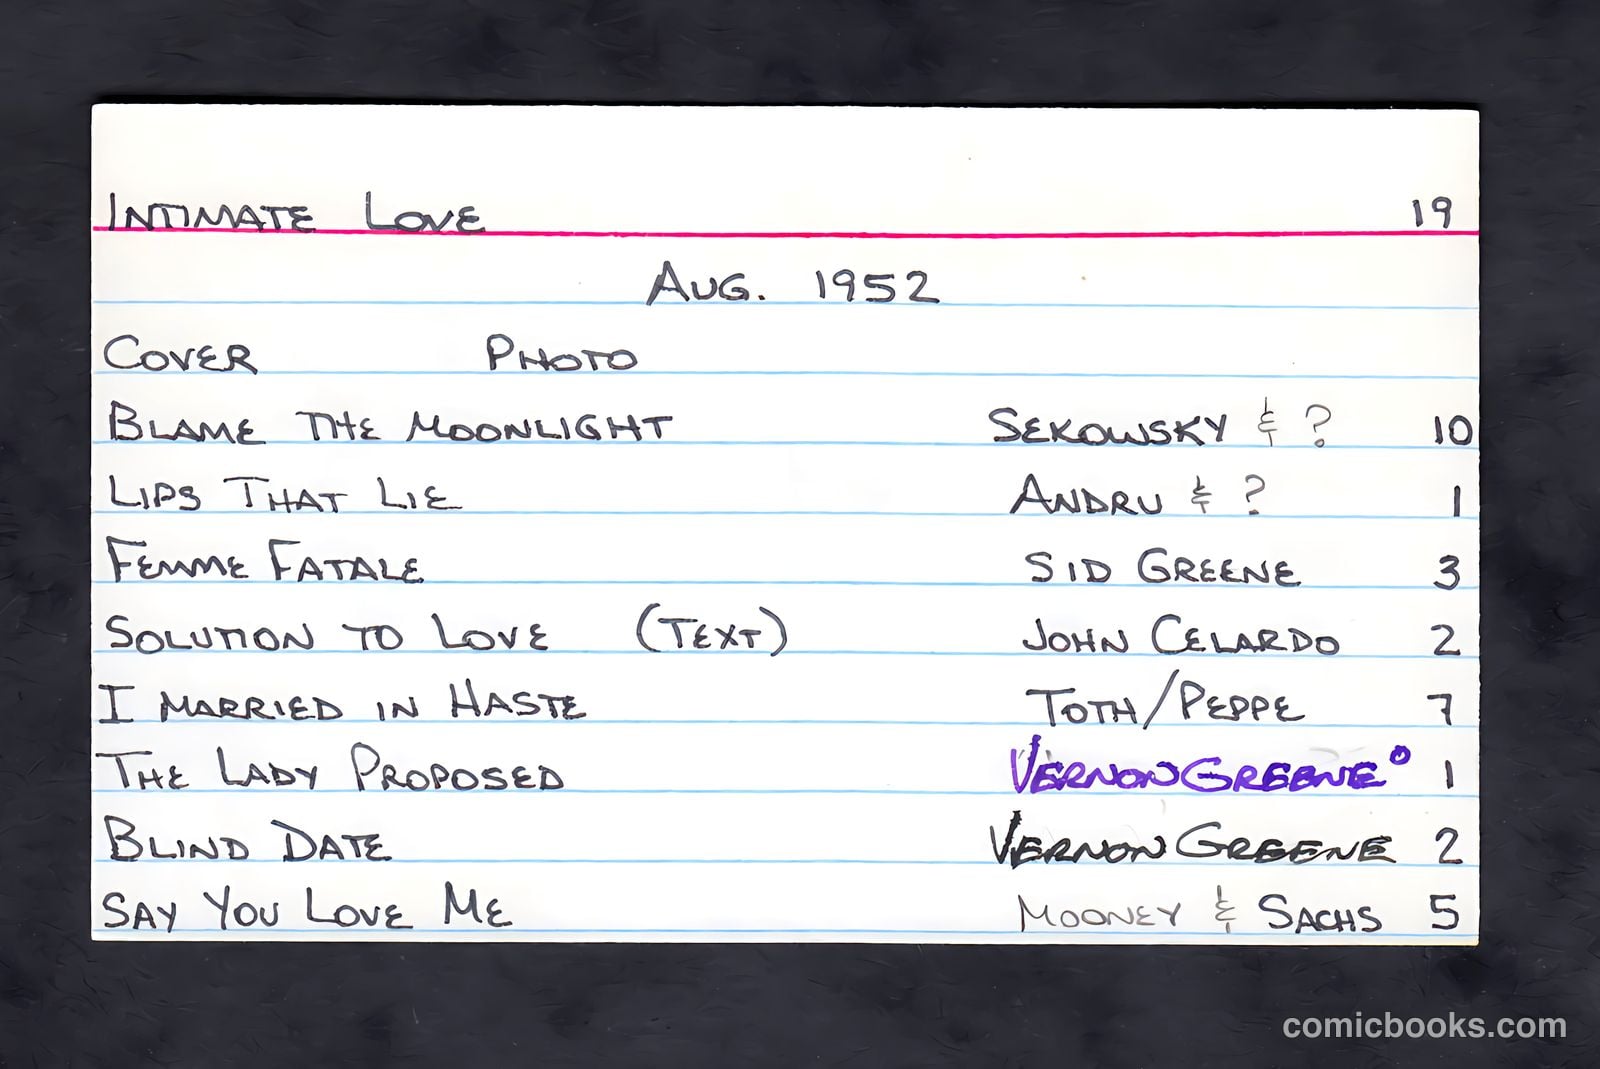 INTIMATE LOVE 19
AUG. 1952
COVER PHOTO
BLAME THE MOONLIGHT SEKOWSKY & ? 10
LIPS THAT LIE ANDRU & ? 1
FEMME FATALE SID GREENE 3
SOLUTION TO LOVE (TEXT) JOHN CELARDO 2
I MARRIED IN HASTE TOTH/PEPPE 7
THE LADY PROPOSED VERNON GREENE° 1
BLIND DATE VERNON GREENE 2
SAY YOU LOVE ME MOONEY & SACHS 5
comicbooks.com